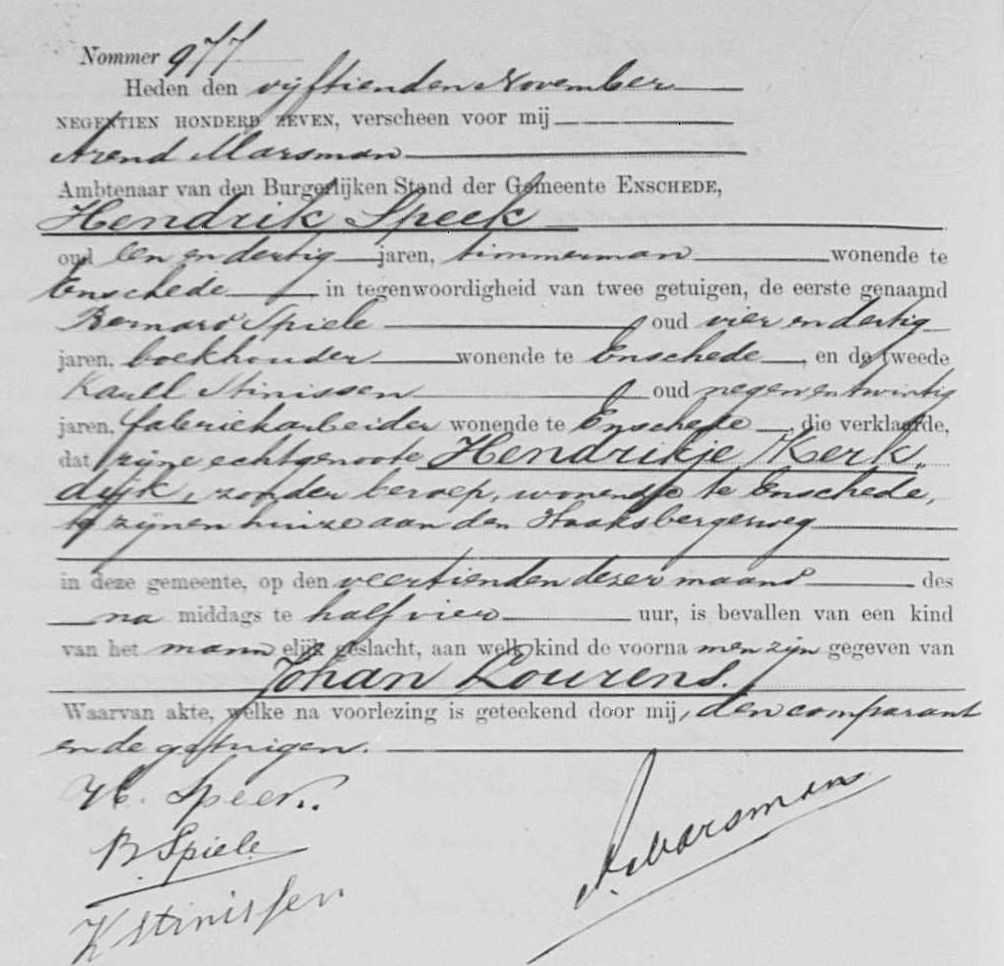 Nommer 977
Heden den vijftienden November
NEGENTIEN HONDERD ZEVEN, verscheen voor mij
Arend Marsman
Ambtenaar van den Burgerlijken Stand der Gemeente ENSCHEDE,
Hendrik Speek
oud een en dertig jaren, timmerman wonende te
Enschede in tegenwoordigheid van twee getuigen, de eerste genaamd
Bernard Spiele oud vier en dertig
jaren, boekhouder wonende te Enschede, en de tweede
Karel Stinissen oud negen en twintig
jaren, fabriekarbeider wonende te Enschede, die verklaarde,
dat zijne echtgenoote Hendrikje Kerk„
dijk, zonder beroep, wonende te Enschede,
te zijnen huize aan den Haaksbergerweg
in deze gemeente, op den veertienden dezer maand des
na middags te half vier uur, is bevallen van een kind
van het mannelijk geslacht, aan welk kind de voornamen zijn gegeven van
Johan Lourens.
Waarvan akte, welke na voorlezing is geteekend door mij, den comparant
en de getuigen.
H. Speek.
B. Spiele
K Stinissen
A. Marsman